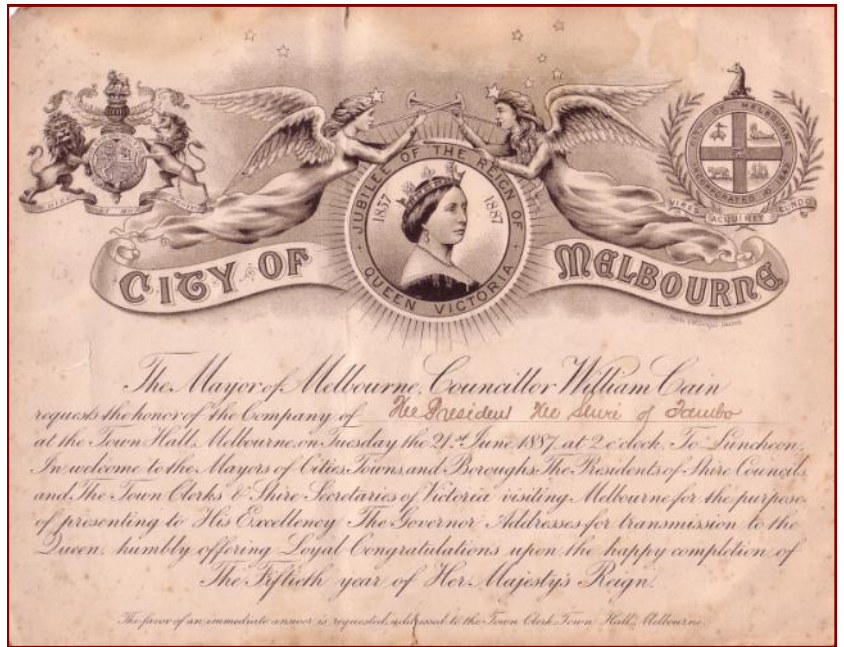 JUBILEE OF THE REIGN OF
1837 1887
QUEEN VICTORIA
CITY OF MELBOURNE
INCORPORATED
DIEU ET MON DROIT
VIRES ACQUIRIT EUNDO
CITY OF MELBOURNE
The Mayor of Melbourne, Councillor William Cain
requests the honor of the Company of The President The Shire of Tambo
at the Town Hall, Melbourne, on Tuesday the 21st June 1887, at 2 o'clock. To Luncheon.
In welcome to the Mayors of Cities, Towns, and Boroughs, The Presidents of Shire Councils
and The Town Clerks & Shire Secretaries of Victoria visiting Melbourne for the purpose
of presenting to His Excellency The Governor Addresses for transmission to the
Queen, humbly offering Loyal Congratulations upon the happy completion of
The Fiftieth year of Her Majesty's Reign.
The favor of an immediate answer is requested, addressed to the Town Clerk, Town Hall, Melbourne.